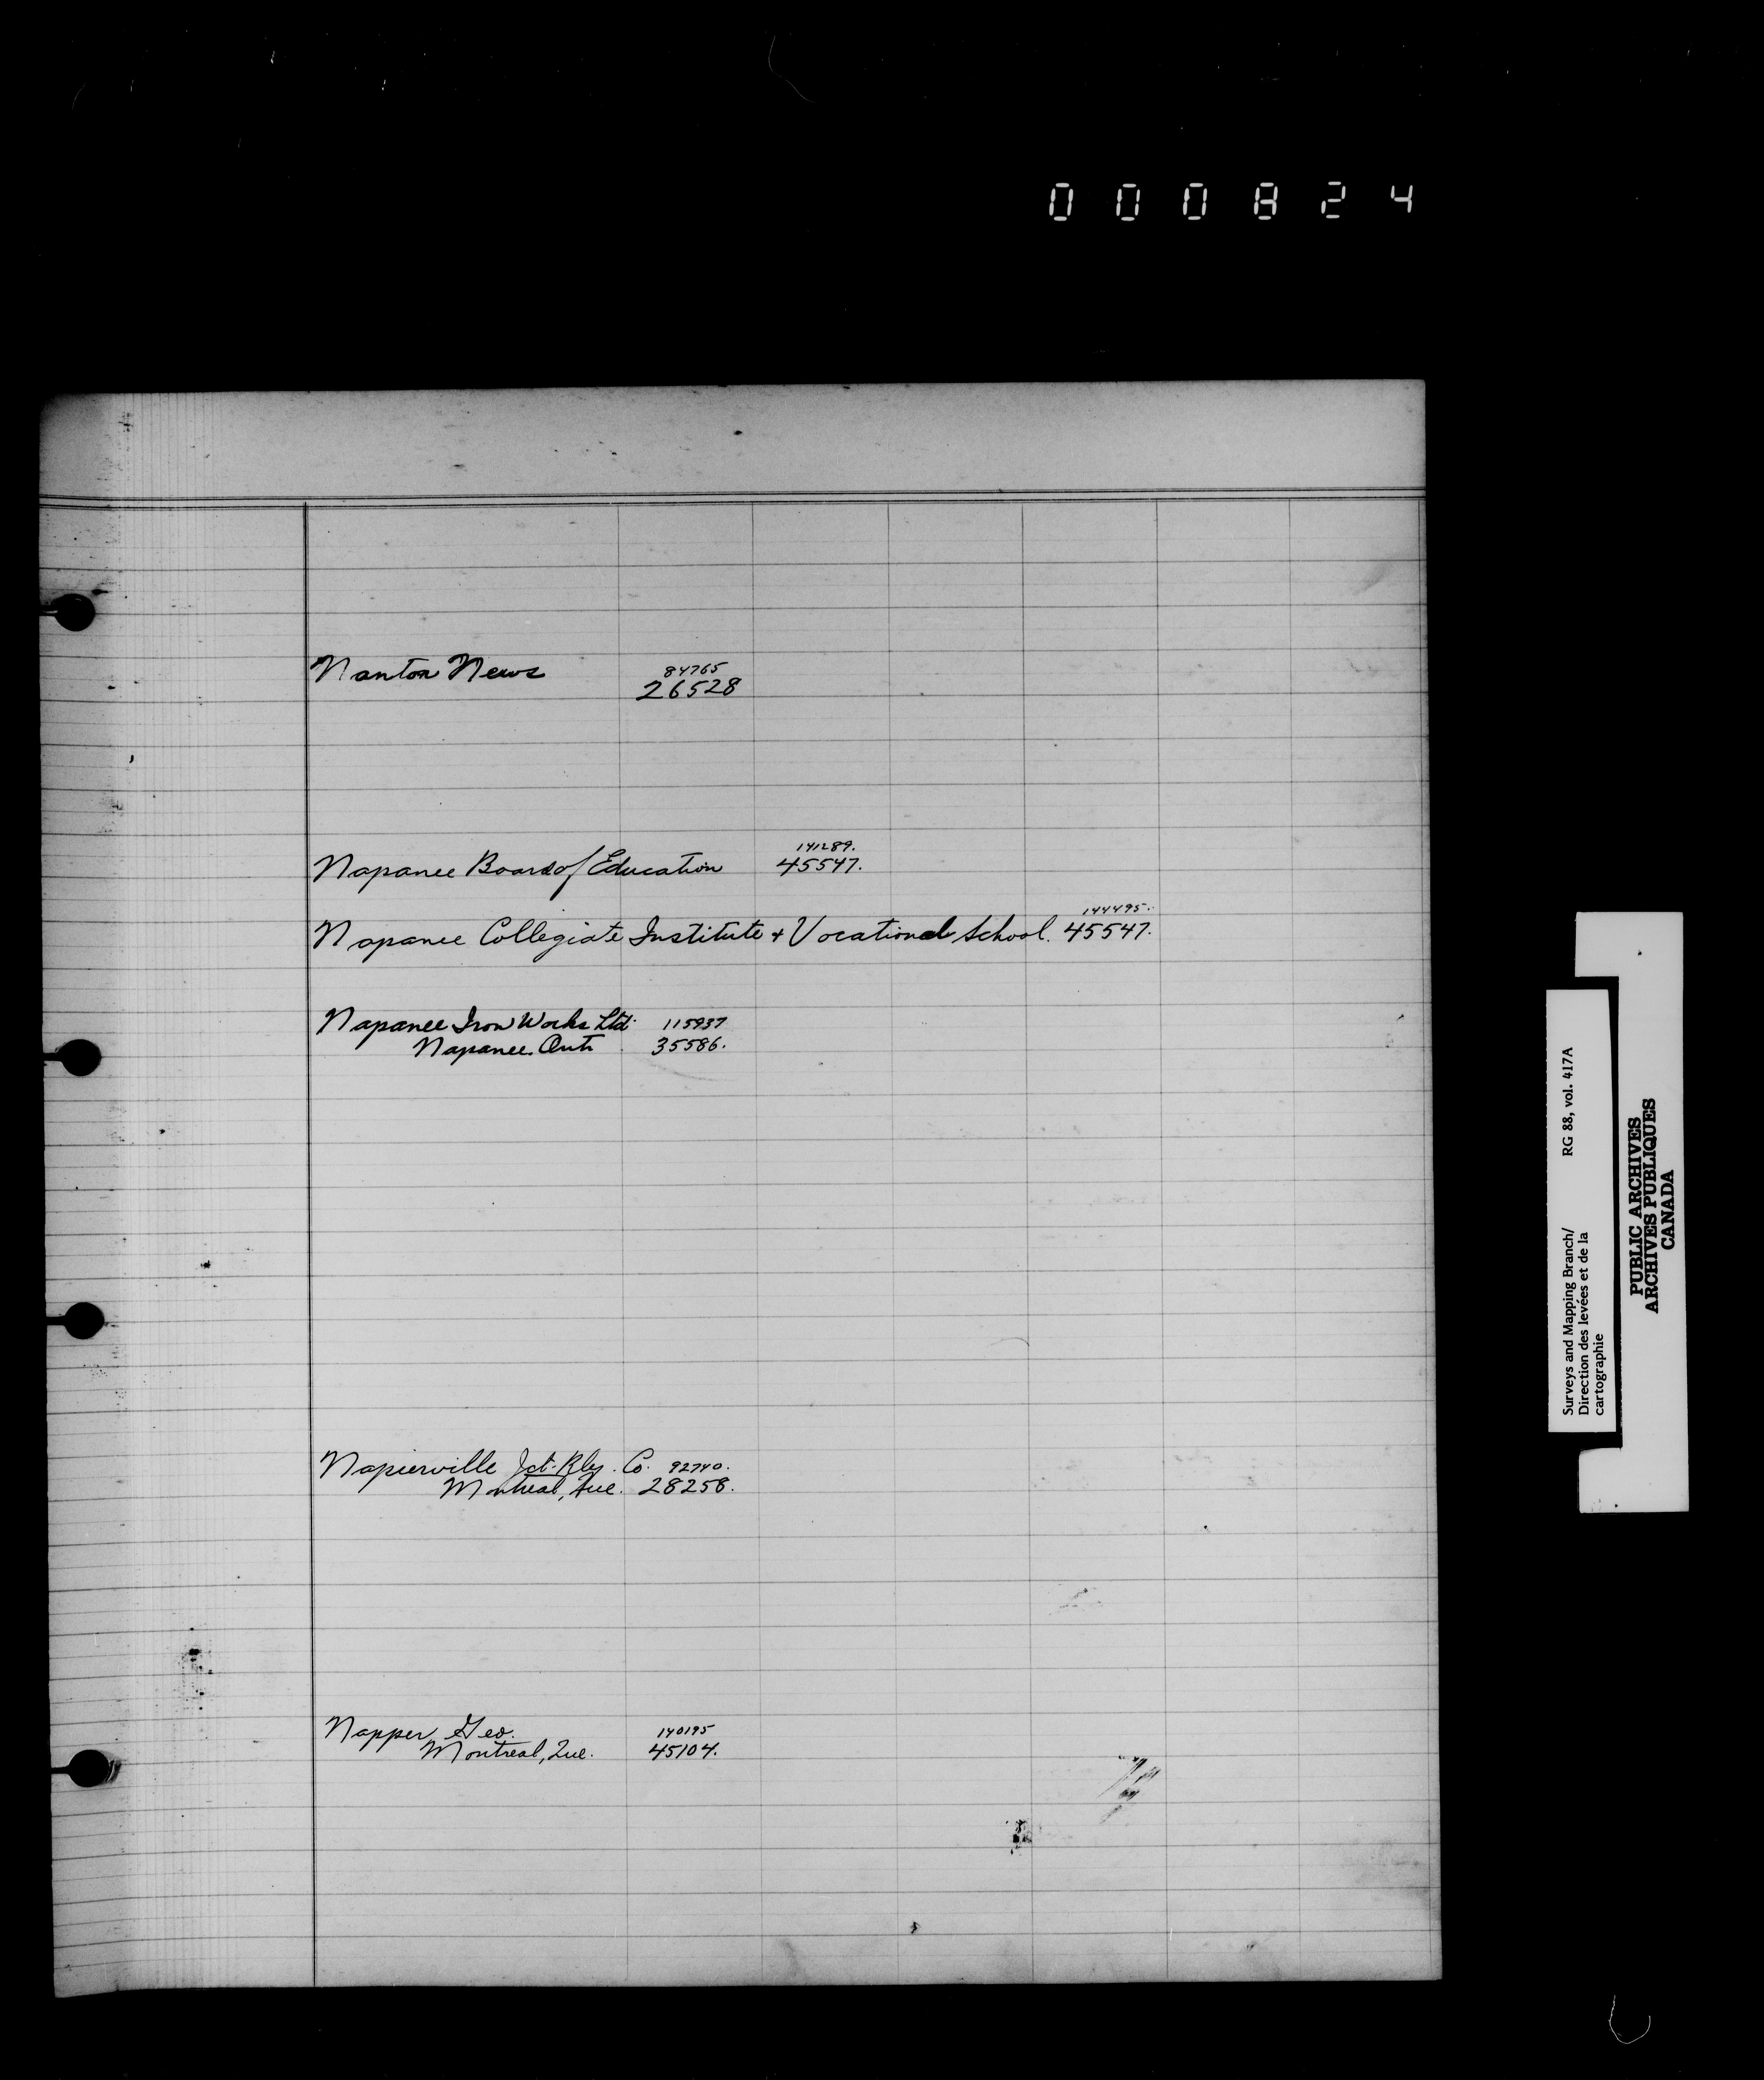 000824
Nanton News 84765
26528
141289.
Napanee Board of Education 45547.
144495.
Napanee Collegiate Institute + Vocational School. 45547.
Napanee Iron Works Ltd. 115937
Napanee. Ont. 35586.
Napierville Jct. Rly. Co. 92740.
Montreal, Que. 28258.
Napper, Geo. 140195
Montreal, Que. 45104.
Surveys and Mapping Branch/ RG 88, vol. 417A
Direction des levées et de la
cartographie
PUBLIC ARCHIVES
ARCHIVES PUBLIQUES
CANADA